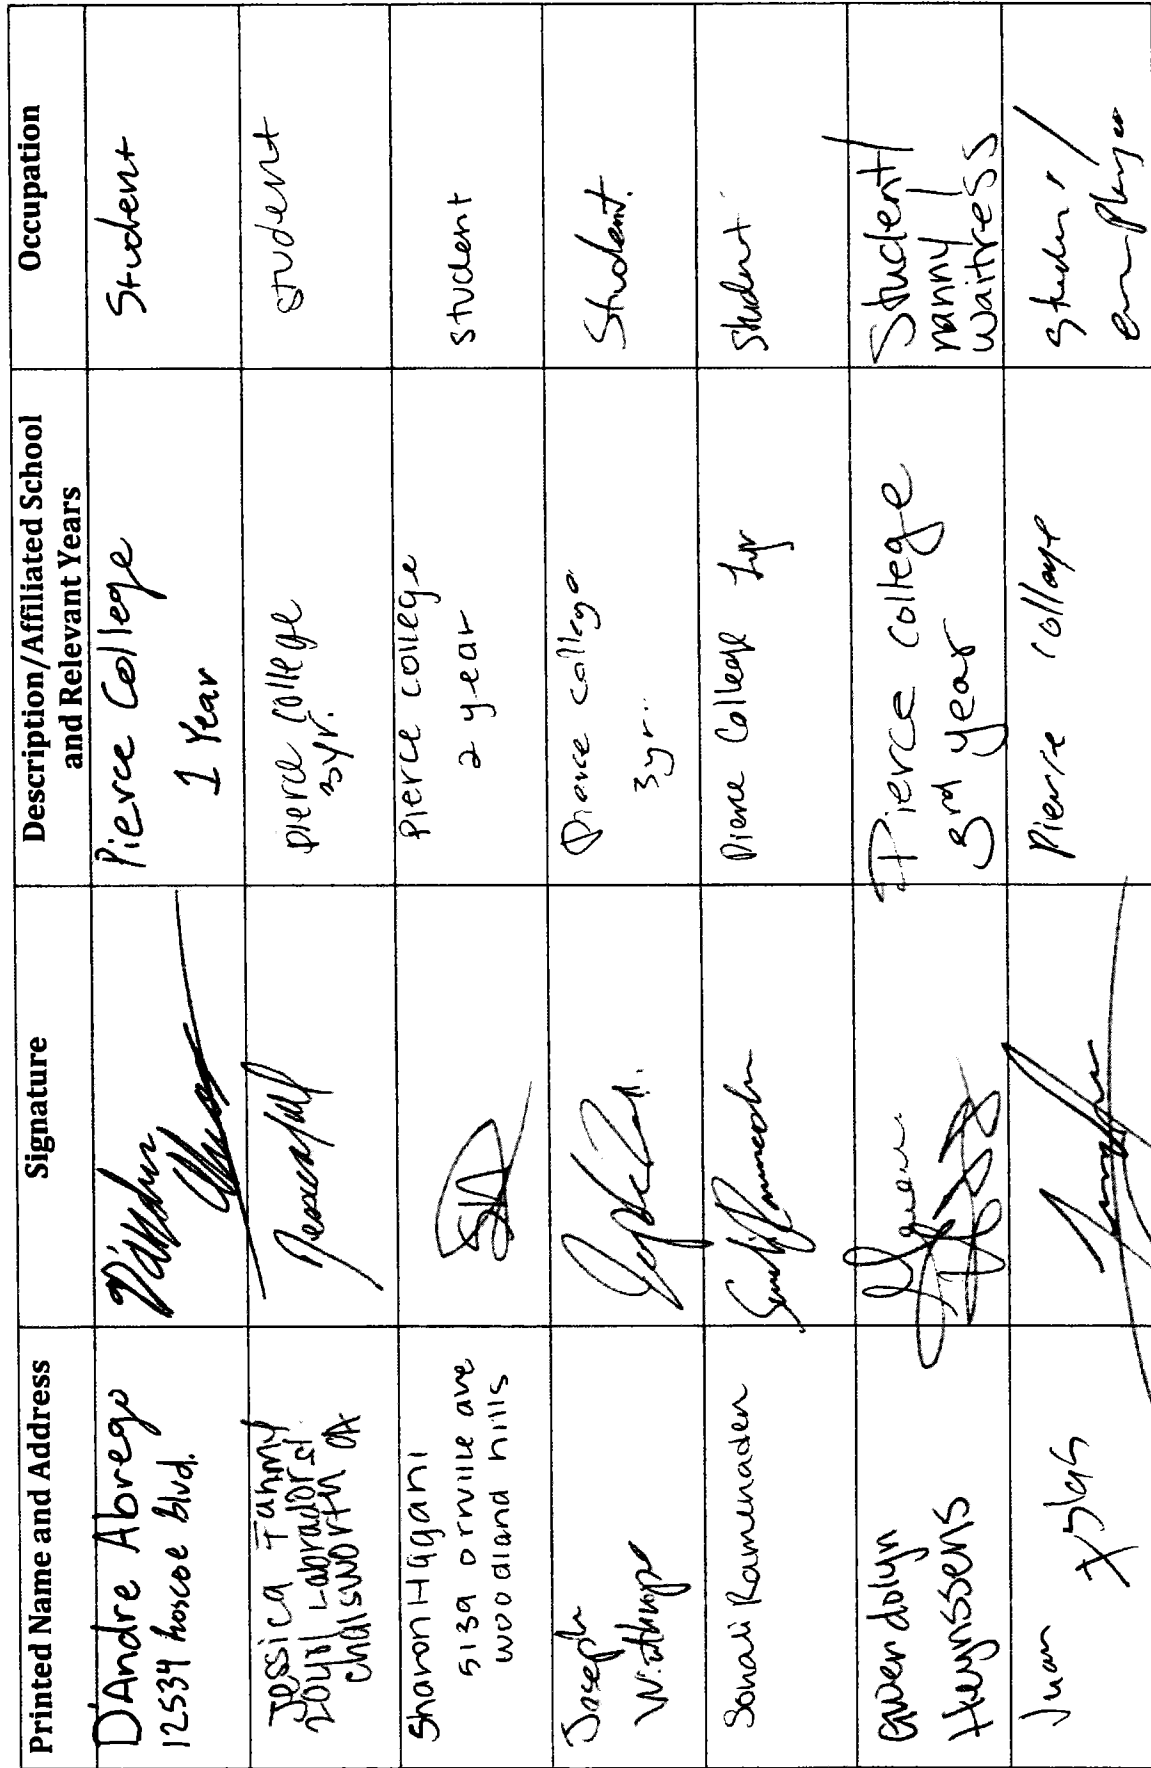 Printed Name and Address
Signature
Description/Affiliated School
and Relevant Years
Occupation
D'Andre Abrego
12534 Roscoe Blvd.
Pierce College
1 Year
Student
Jessica Fahmy
Labrador st
chatsworth CA
pierce college
3yr.
student
Sharon Hagani
5139 orville ave
woodland hills
Pierce college
2 year
student
Joseph
Winthrope
Pierce college
3yr.
Student.
Sonali Ramenaden
Pierce College 1yr
Student
Gwendolyn
Heynssens
Pierce college
3rd year
Student/
nanny/
waitress
Juan
Pierce college
Student/